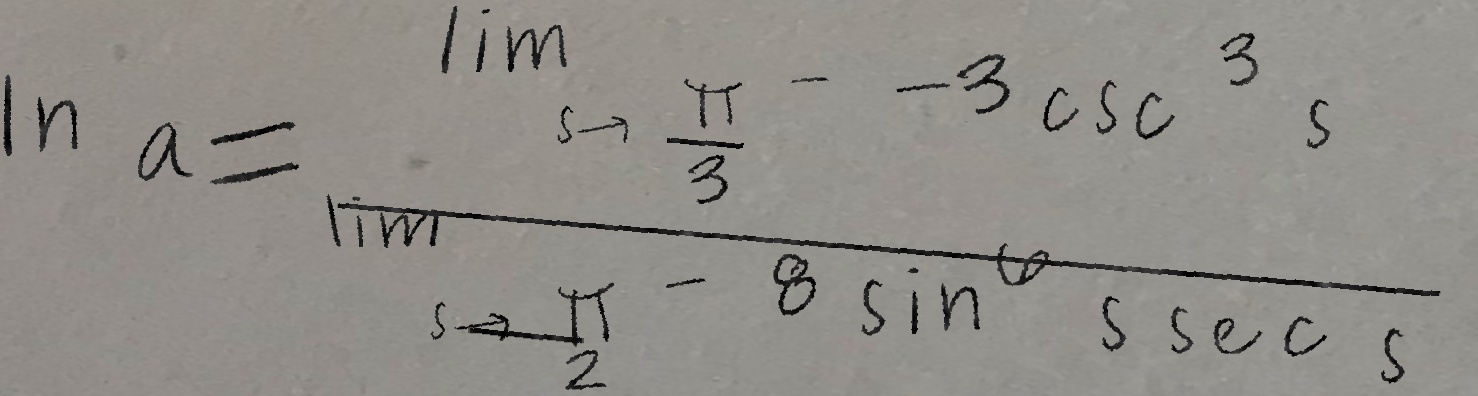 \ln a = \frac{\lim_{s \to \frac{\pi}{3}^-} -3 \csc^3 s}{\lim_{s \to \frac{\pi}{2}^-} 8 \sin^6 s \sec s}